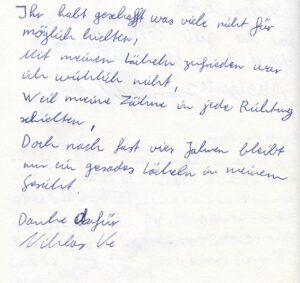 Ihr habt geschafft was viele nicht für
möglich hielten,
Mit meinem Lächeln zufrieden war
ich wirklich nicht,
Weil meine Zähne in jede Richtung
schielten,
Doch nach fast vier Jahren bleibt
nur ein gerades Lächeln in meinem
Gesicht.
Danke dafür
Niklas